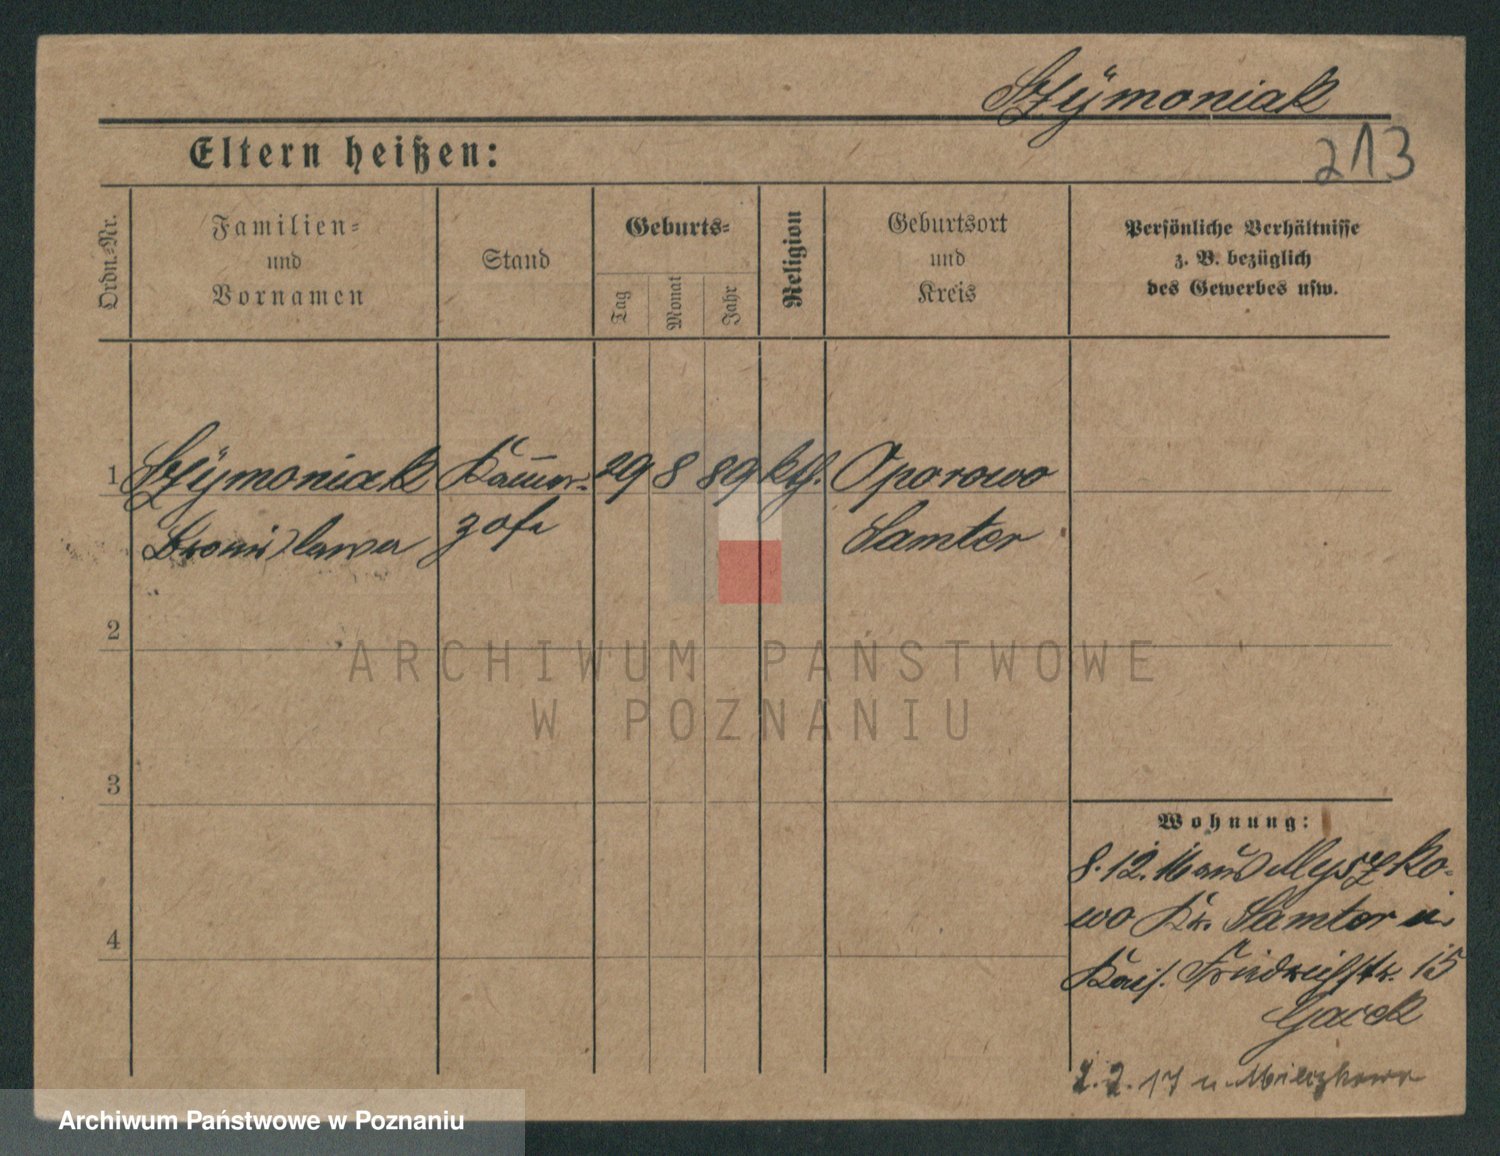 Szÿmoniak
213
Eltern heißen:
Ordn.-Nr.
Familien-
und
Vornamen
Stand
Geburts-
Tag
Monat
Jahr
Religion
Geburtsort
und
Kreis
Persönliche Verhältnisse
z. B. bezüglich
des Gewerbes usw.
1 Szÿmoniak 29 8 89 kth. Oporowo
Bronislawa zofe Samter
2
ARCHIWUM PAŃSTWOWE
W POZNANIU
3
Wohnung:
8.12.16 aus Myszko-
wo Kr. Samter in
4
Kais. Friedrichstr. 15
Gacek
2.2.17 n. Mieczkowo
Archiwum Państwowe w Poznaniu